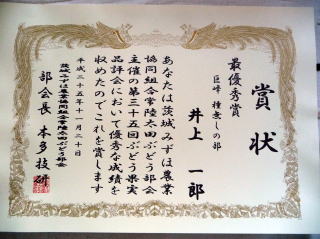 賞状
最優秀賞
巨峰 種無しの部
井上 一郎
あなたは茨城みずほ農業
協同組合常陸太田ぶどう部会
主催の第三十五回ぶどう果実
品評会において優秀な成績を
収めたのでこれを賞します
平成二十五年十一月二十日
茨城みずほ農業協同組合常陸太田ぶどう部会
部会長 本多技研